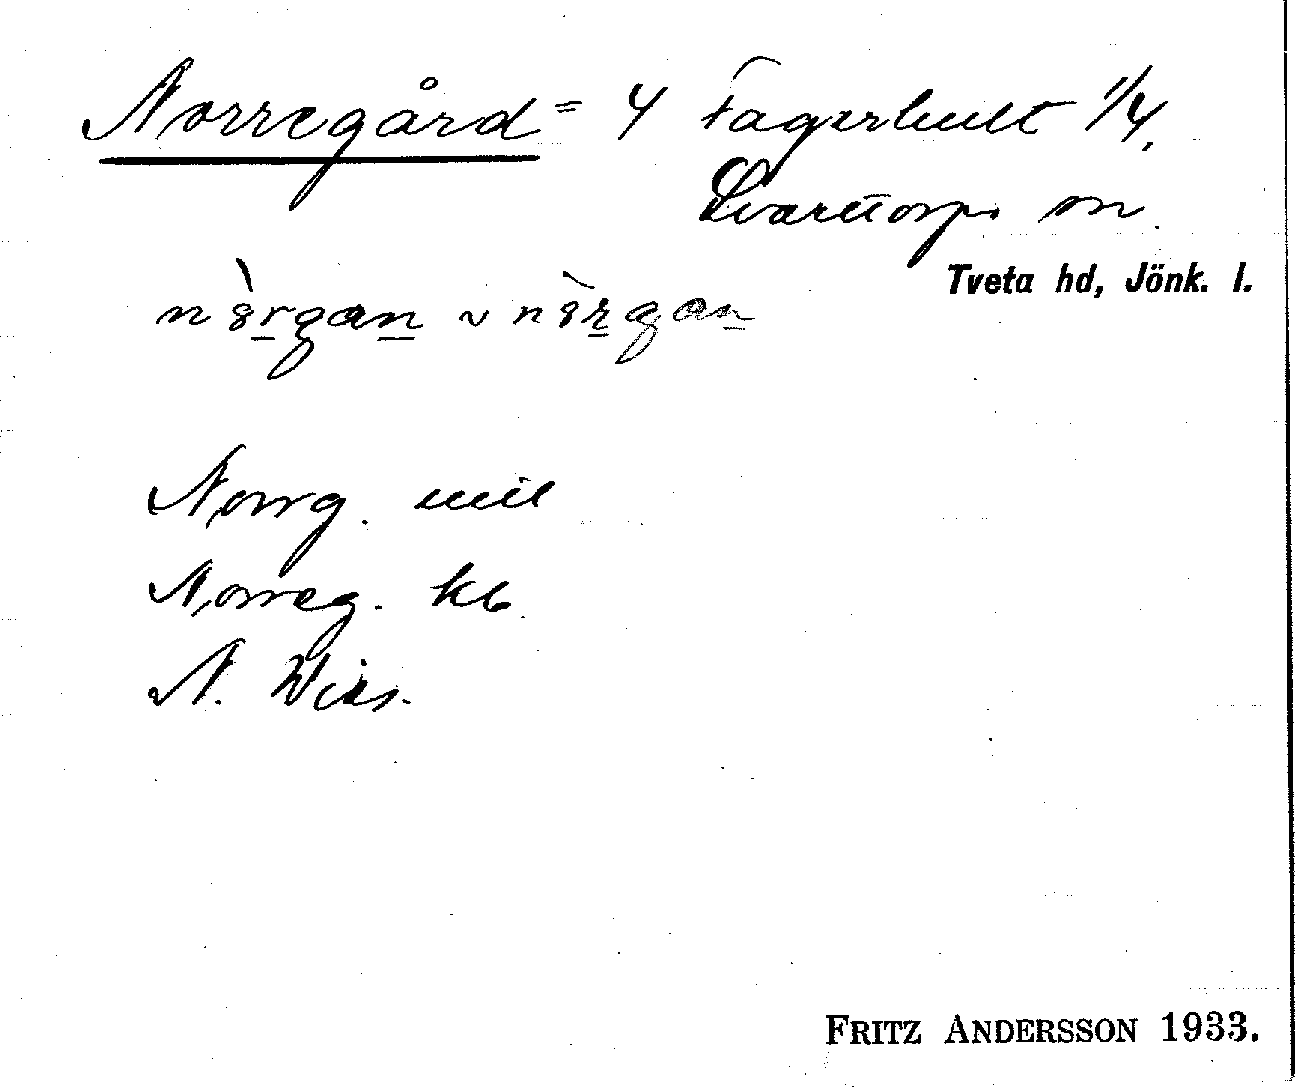 Norregård = 4 Fagerhult 1/4.
Svarttorps sn.
Tveta hd, Jönk. l.
Norrg. mil
Norreg. kb.
N. Wies.
FRITZ ANDERSSON 1933.